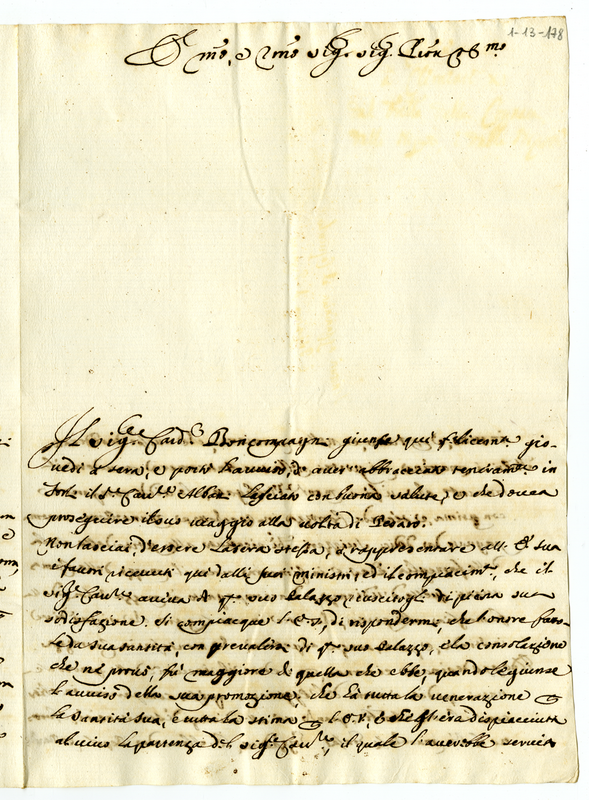 1-13-178
E.mo, e R.mo Sig.r Sig.r Pron Col.mo
Il Sig.r Card.l Boncompagni giunse qui felicem.te gio-
vedi a sera, e portò l'avviso, d'aver abbracciato teneram.te in
Forlì il S.r Cav.re Albani lasciato con buona salute, e che dovea
proseguire il suo viaggio alla volta di Pesaro.
Non lasciai d'essere la sera stessa, a rappresentare all' E. sua
i favori ricevuti qui dalli suoi ministri, ed il compiacim.to, che il
Sig.r Cav.re aveva di q.to suo Palazzo riuscitogli di piena sua
sodisfazione. Si compiacque l'E.S. di rispondermi, che l'onore fatto-
le da sua Santità, con prevalersi di q.to suo Palazzo, e la consolazione
che ne provò, fù maggiore di quella che ebbe, quando le giunse
l'avviso della sua promozione, che hà tutta la venerazione p
la Santità Sua, e tutta la stima p l'E.V., e che gl'era dispiacciuta
al vivo la partenza del Sig.r Cav.re, il quale l'averebbe servito